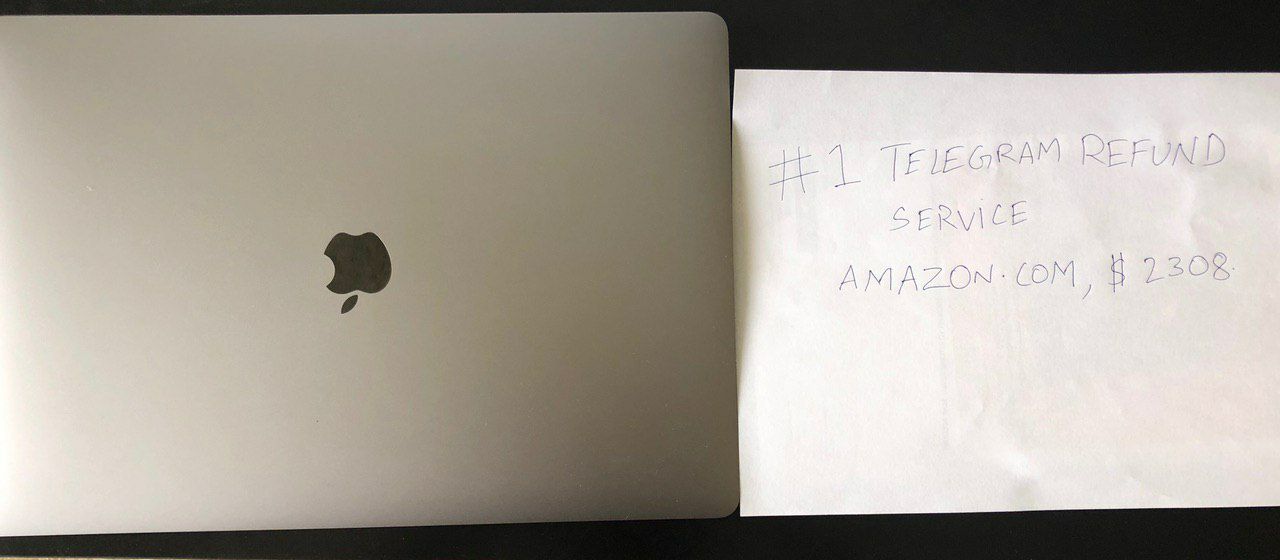 #1 TELEGRAM REFUND
SERVICE
AMAZON.COM, $ 2308.